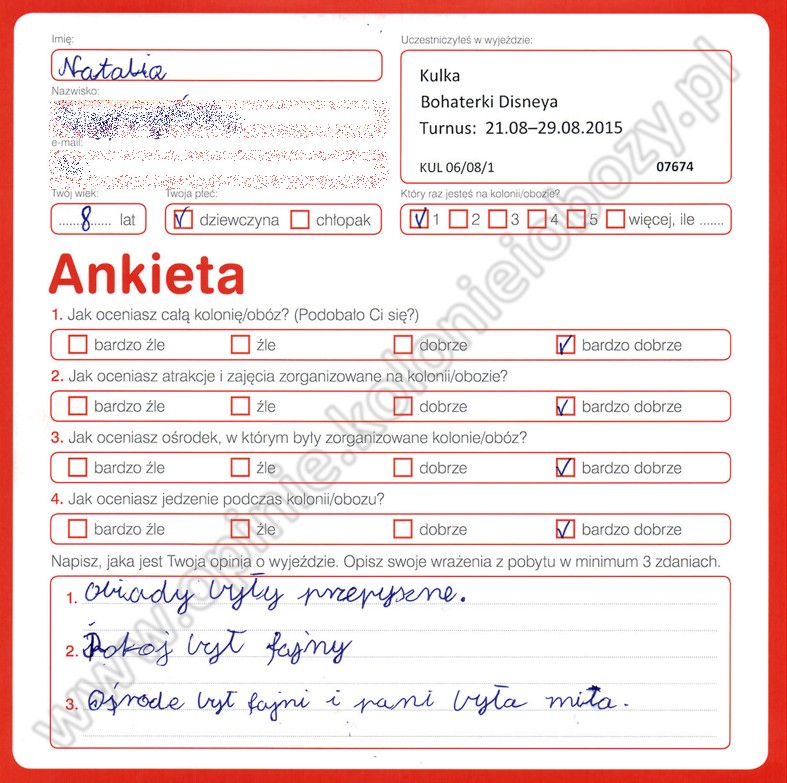 Imię:
Natalia
Nazwisko:
e-mail:
Uczestniczyłeś w wyjeździe:
Kulka
Bohaterki Disneya
Turnus: 21.08–29.08.2015
KUL 06/08/1 07674
Twój wiek:
......8...... lat
Twoja płeć:
dziewczyna chłopak
Który raz jesteś na kolonii/obozie?
1 2 3 4 5 więcej, ile .......
Ankieta
1. Jak oceniasz całą kolonię/obóz? (Podobało Ci się?)
bardzo źle źle dobrze bardzo dobrze
2. Jak oceniasz atrakcje i zajęcia zorganizowane na kolonii/obozie?
bardzo źle źle dobrze bardzo dobrze
3. Jak oceniasz ośrodek, w którym były zorganizowane kolonie/obóz?
bardzo źle źle dobrze bardzo dobrze
4. Jak oceniasz jedzenie podczas kolonii/obozu?
bardzo źle źle dobrze bardzo dobrze
Napisz, jaka jest Twoja opinia o wyjeździe. Opisz swoje wrażenia z pobytu w minimum 3 zdaniach.
1. Obiady były przepyszne.
2. Pokoj był fajny
3. Ośrode był fajni i pani była miła.
www.opinie.kolonieiobozy.pl